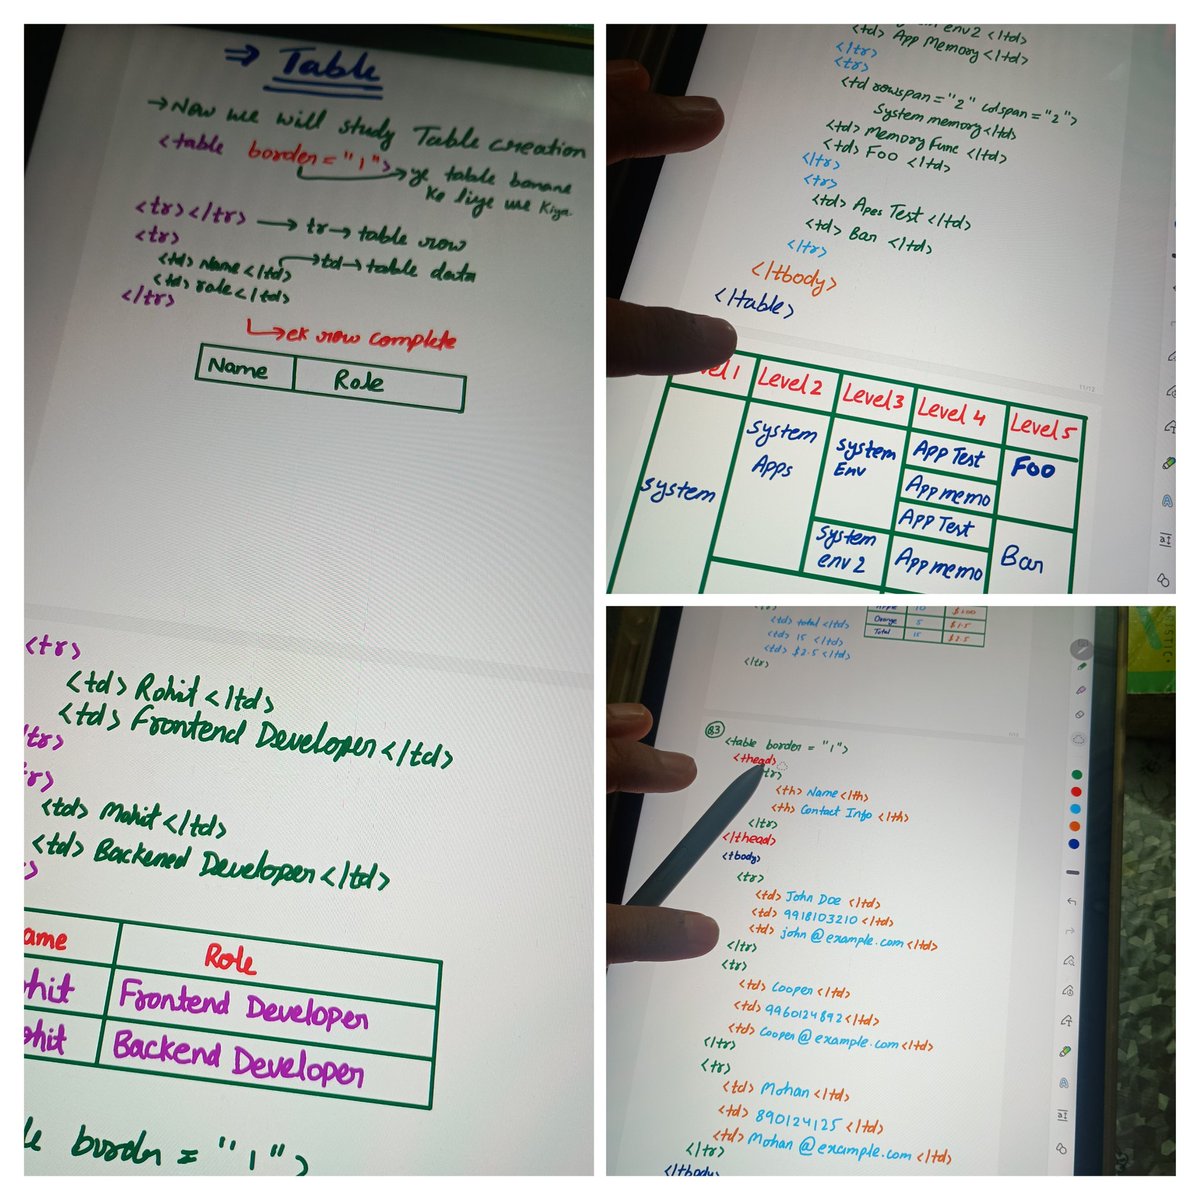 ⇒ Table
→ Now we will study Table creation
<table border="1"> → ye table banane
ke liye use kiya
<tr></tr> → tr → table row
<tr>
<td> Name </td> → td → table data
<td> role </td>
</tr>
↳ ek row complete
Name Role
<tr>
<td> Rohit </td>
<td> Frontend Developer </td>
<td> Mohit </td>
<td> Backened Developer </td>
Role
Frontend Developer
Backend Developer
border = "1">
env2 </td>
<td> App Memory </td>
</tr>
<tr>
<td rowspan="2" colspan="2">
System memory </td>
<td> Memory Func </td>
<td> Foo </td>
</tr>
<tr>
<td> Apes Test </td>
<td> Bar </td>
</tr>
</tbody>
</table>
11/12
Level 2 Level 3 Level 4 Level 5
System
System Apps
System Env
App Test
Foo
App memo
App Test
System env 2
App memo
Bar
<td> total </td>
<td> 15 </td>
<td> $2.5 </td>
</tr>
Orange 5 $1.5
Total 15 $2.5
Q3
<table border = "1">
<thead>
<tr>
<th> Name </th>
<th> Contact Info </th>
</tr>
</thead>
<tbody>
<tr>
<td> John Doe </td>
<td> 9918103210 </td>
<td> john@example.com </td>
</tr>
<tr>
<td> Cooper </td>
<td> 9960124892 </td>
<td> Cooper@example.com </td>
</tr>
<tr>
<td> Mohan </td>
<td> 890124125 </td>
<td> Mohan@example.com </td>
</tr>
</tbody>